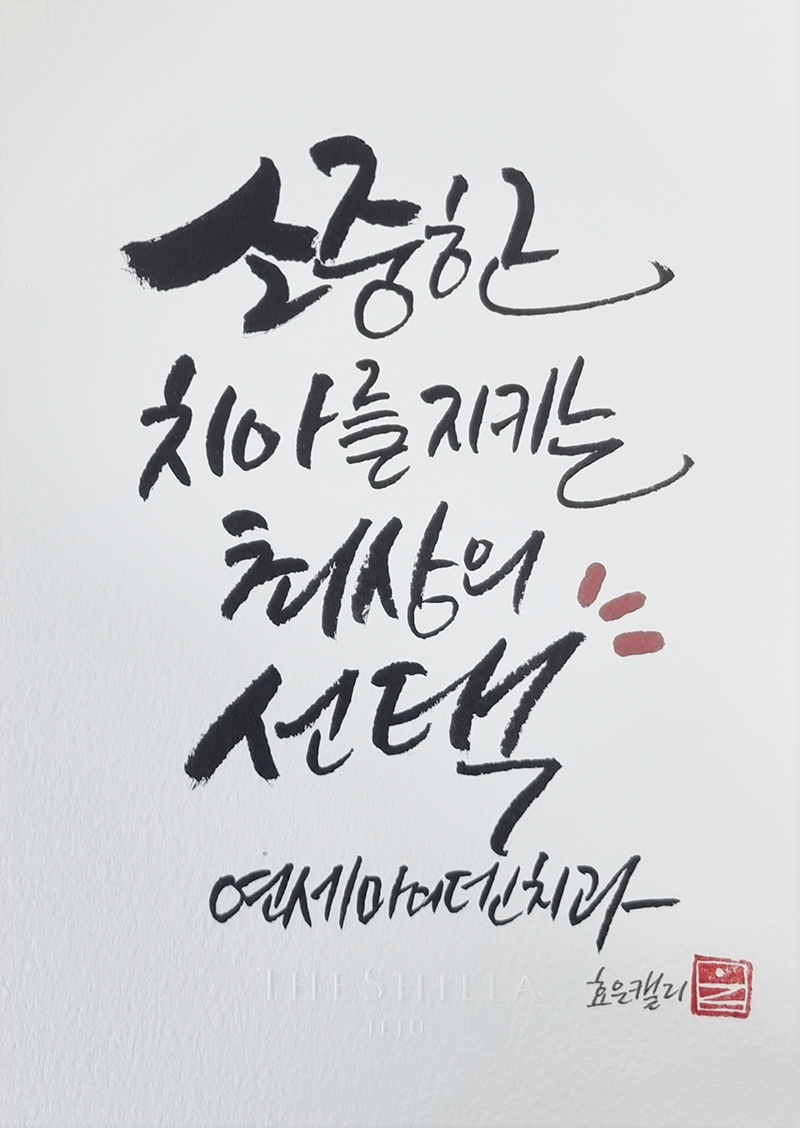 소중한
치아를 지키는
최상의
선택
연세마이덴치과
THE SHILLA
JEJU
효은캘리